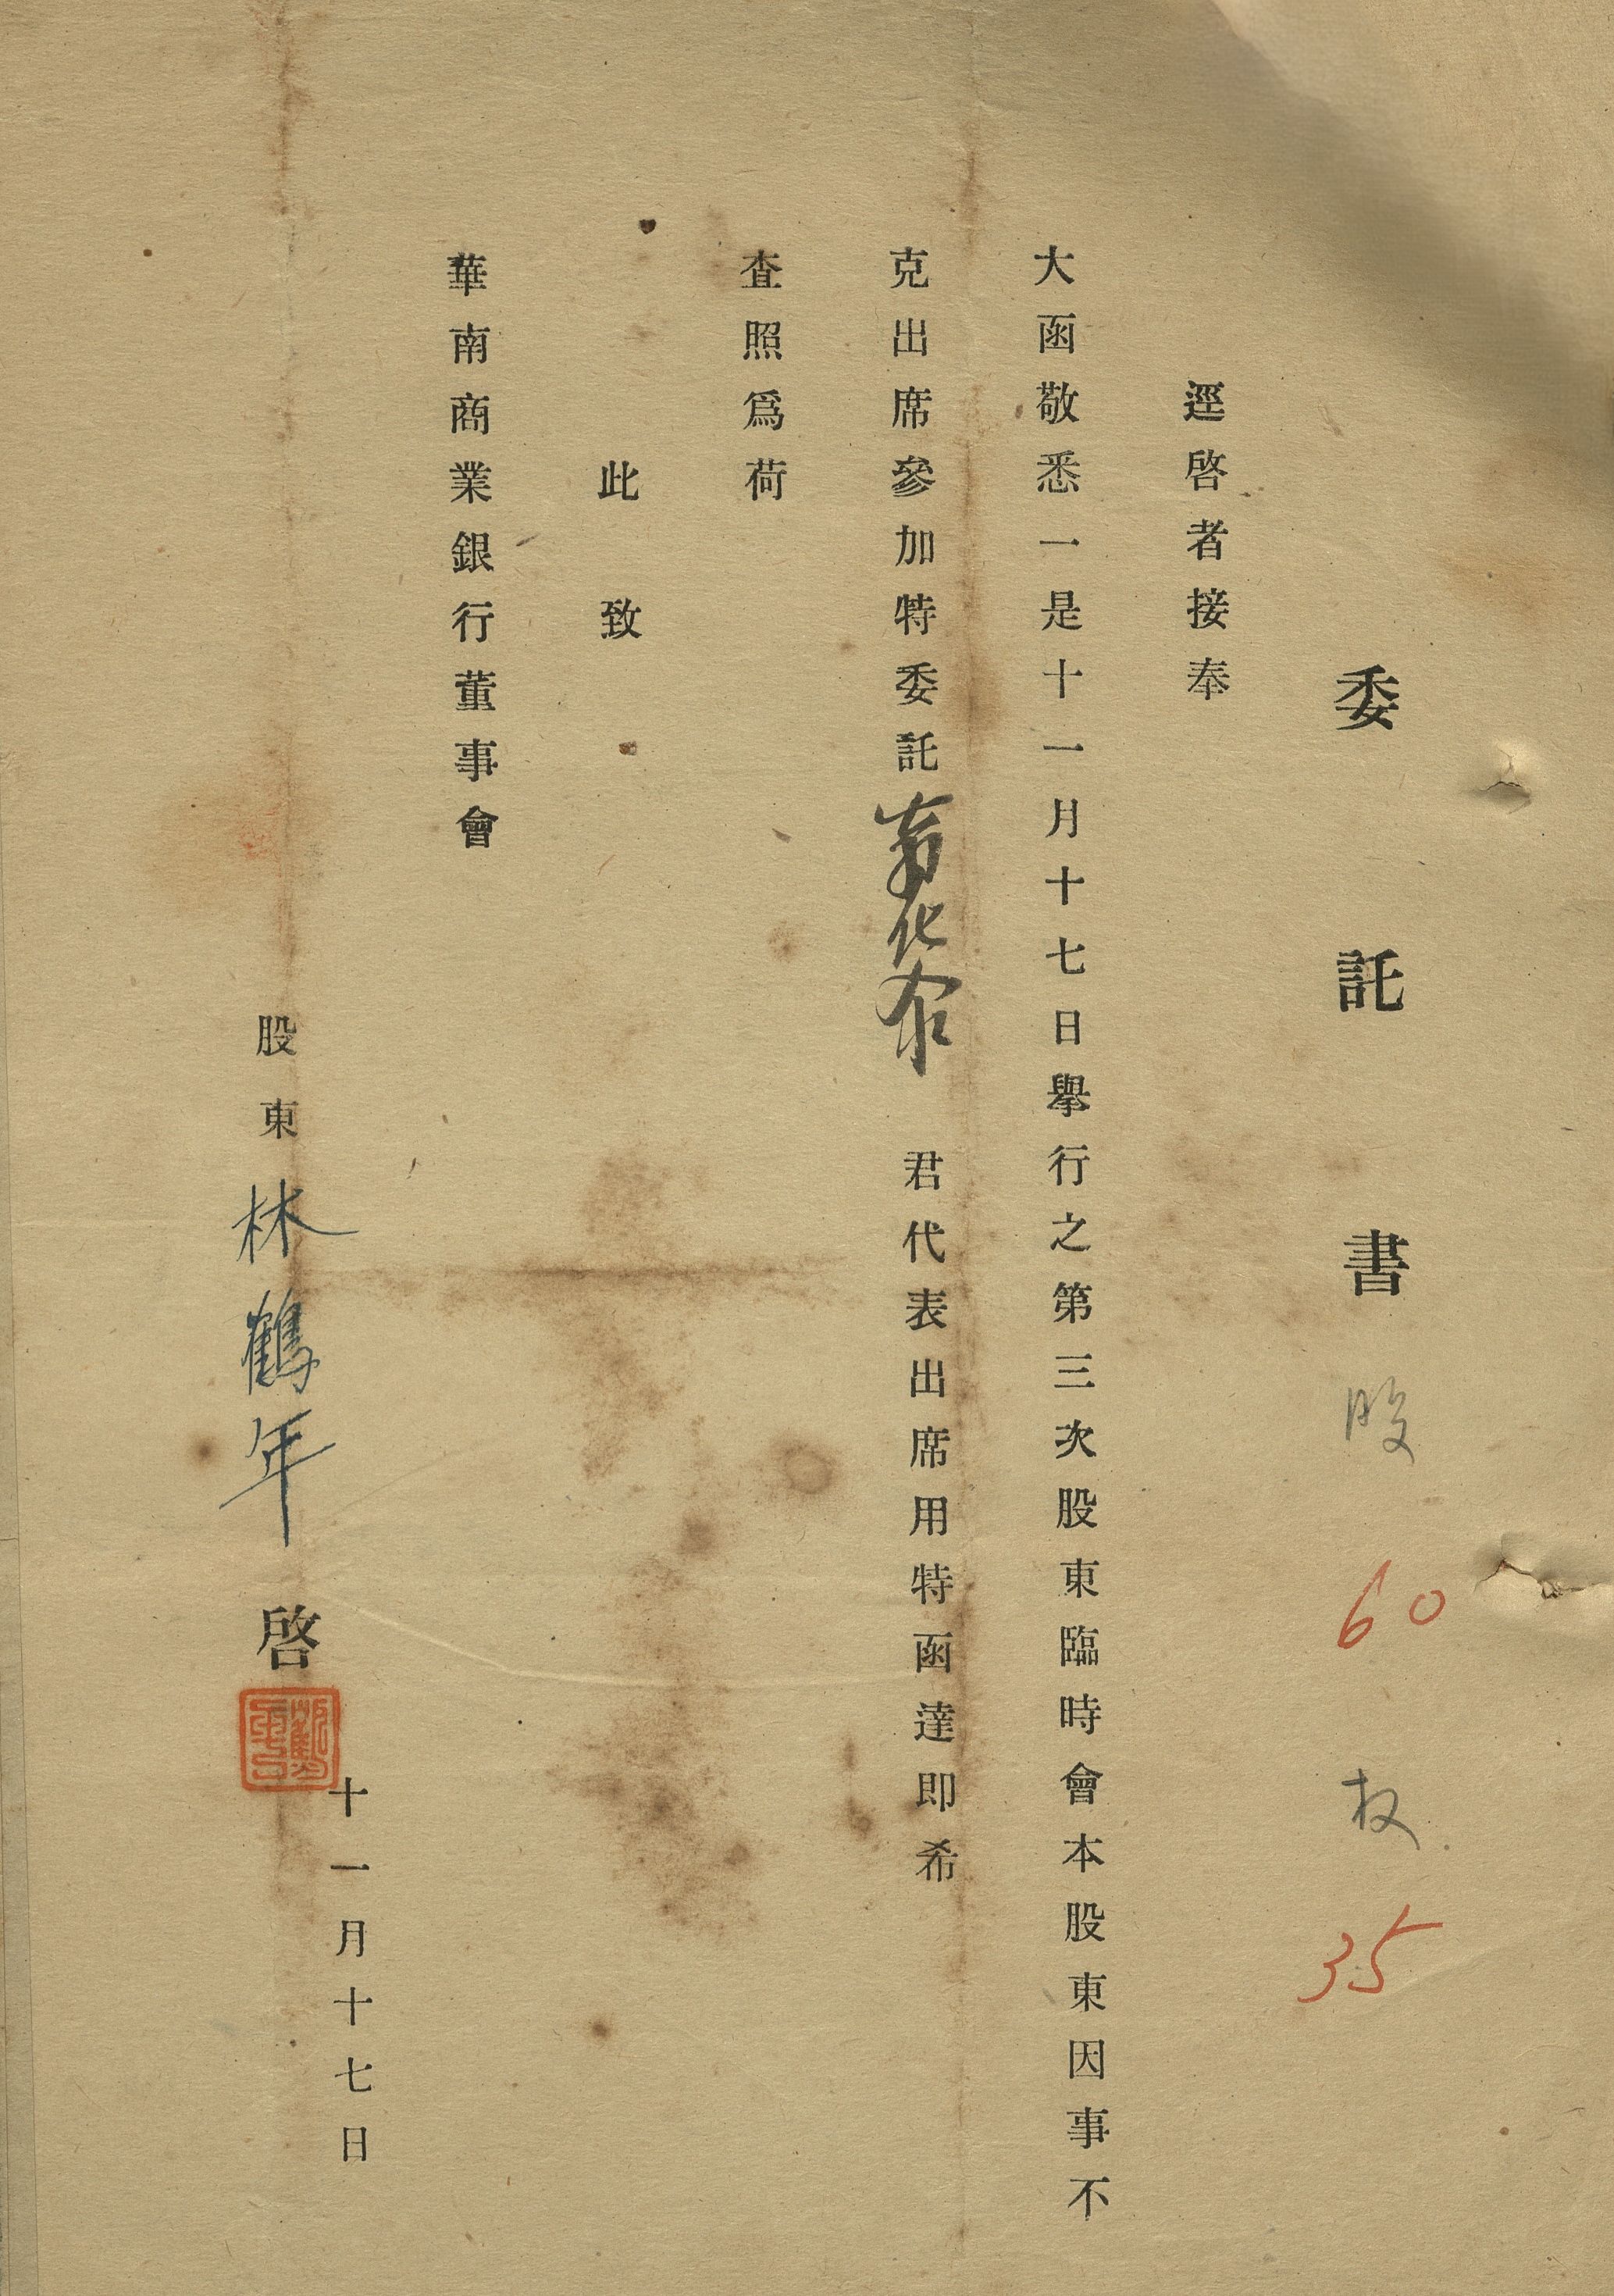 委託書 股 60 权 35
逕啓者接奉
大函敬悉一是十一月十七日舉行之第三次股東臨時會本股東因事不
克出席參加特委託 君代表出席用特函達即希
查照爲荷
此致
華南商業銀行董事會
十一月十七日
股東 林鶴年 啓